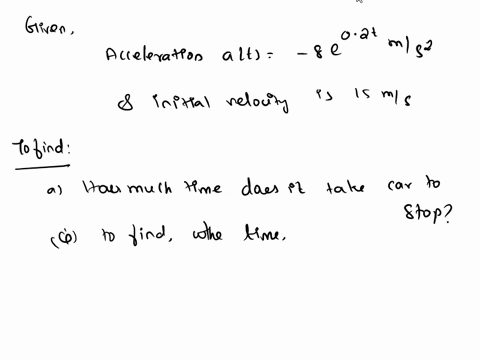 Given,
Acceleration a(t) = -8e^0.2t m/s2
& initial velocity is 15 m/s
To find:
a) How much time does it take car to
stop?
to find, the time.